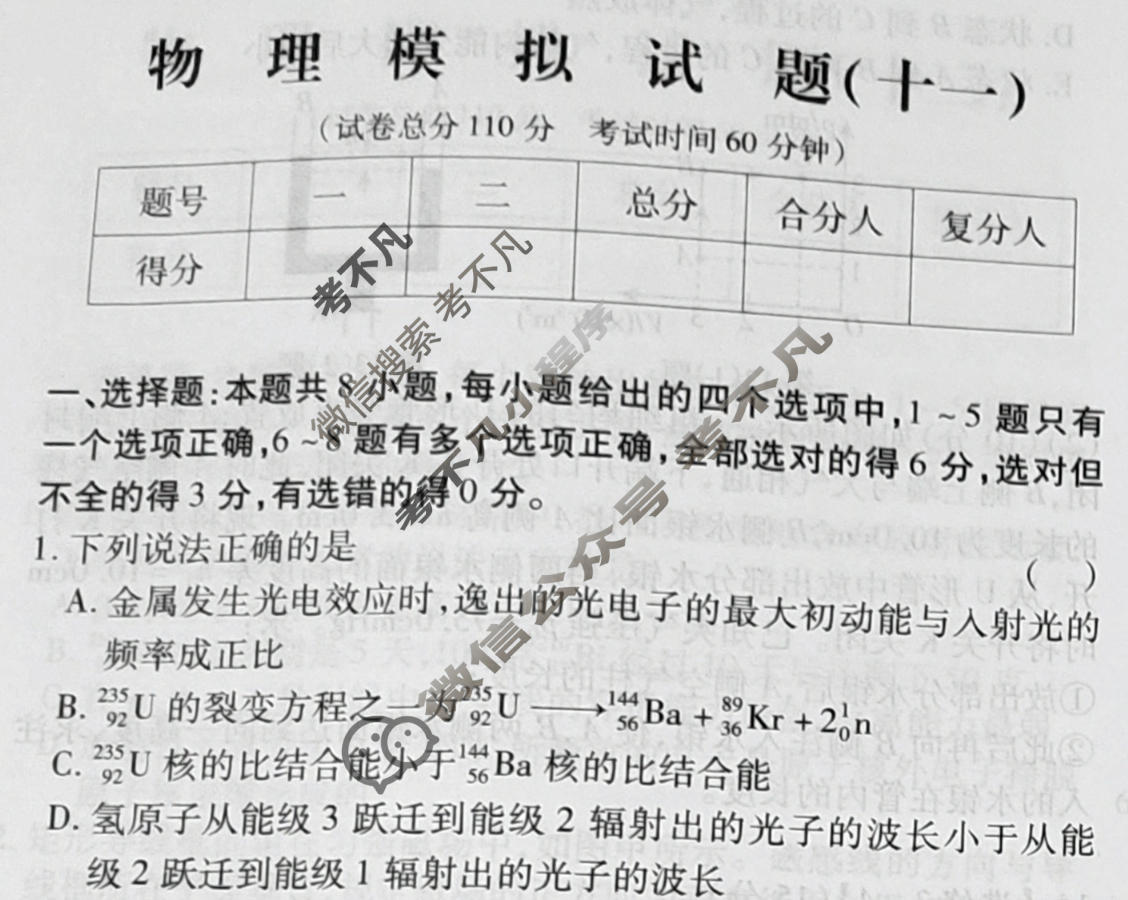 物理模拟试题(十一)
(试卷总分110分 考试时间60分钟)
题号 一 二 总分 合分人 复分人
得分
一、选择题:本题共8小题,每小题给出的四个选项中,1~5题只有
一个选项正确,6~8题有多个选项正确,全部选对的得6分,选对但
不全的得3分,有选错的得0分。
1.下列说法正确的是 ( )
A.金属发生光电效应时,逸出的光电子的最大初动能与入射光的
频率成正比
B. ²³⁵₉₂U的裂变方程之一为²³⁵₉₂U⟶¹⁴⁴₅₆Ba+⁸⁹₃₆Kr+2¹₀n
C. ²³⁵₉₂U核的比结合能小于¹⁴⁴₅₆Ba核的比结合能
D.氢原子从能级3跃迁到能级2辐射出的光子的波长小于从能
级2跃迁到能级1辐射出的光子的波长
考不凡
微信搜索 考不凡
考不凡小程序
微信公众号 考不凡